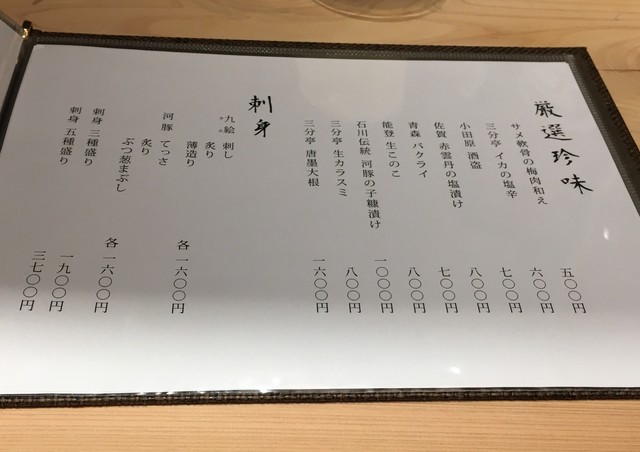 厳選珍味
サメ軟骨の梅肉和え 五〇〇円
三分亭 イカの塩辛 六〇〇円
小田原 酒盗 七〇〇円
佐賀 赤雲丹の塩漬け 八〇〇円
青森 バクライ 七〇〇円
能登 生このこ 八〇〇円
石川伝統 河豚の子糠漬け 一〇〇〇円
三分亭 生カラスミ 八〇〇円
三分亭 唐墨大根 一六〇〇円
刺身
九絵 刺し
クエ
炙り
薄造り 各一六〇〇円
河豚 てっさ
炙り
ぶつ葱まぶし 各一六〇〇円
刺身 三種盛り 一九〇〇円
刺身 五種盛り 三七〇〇円